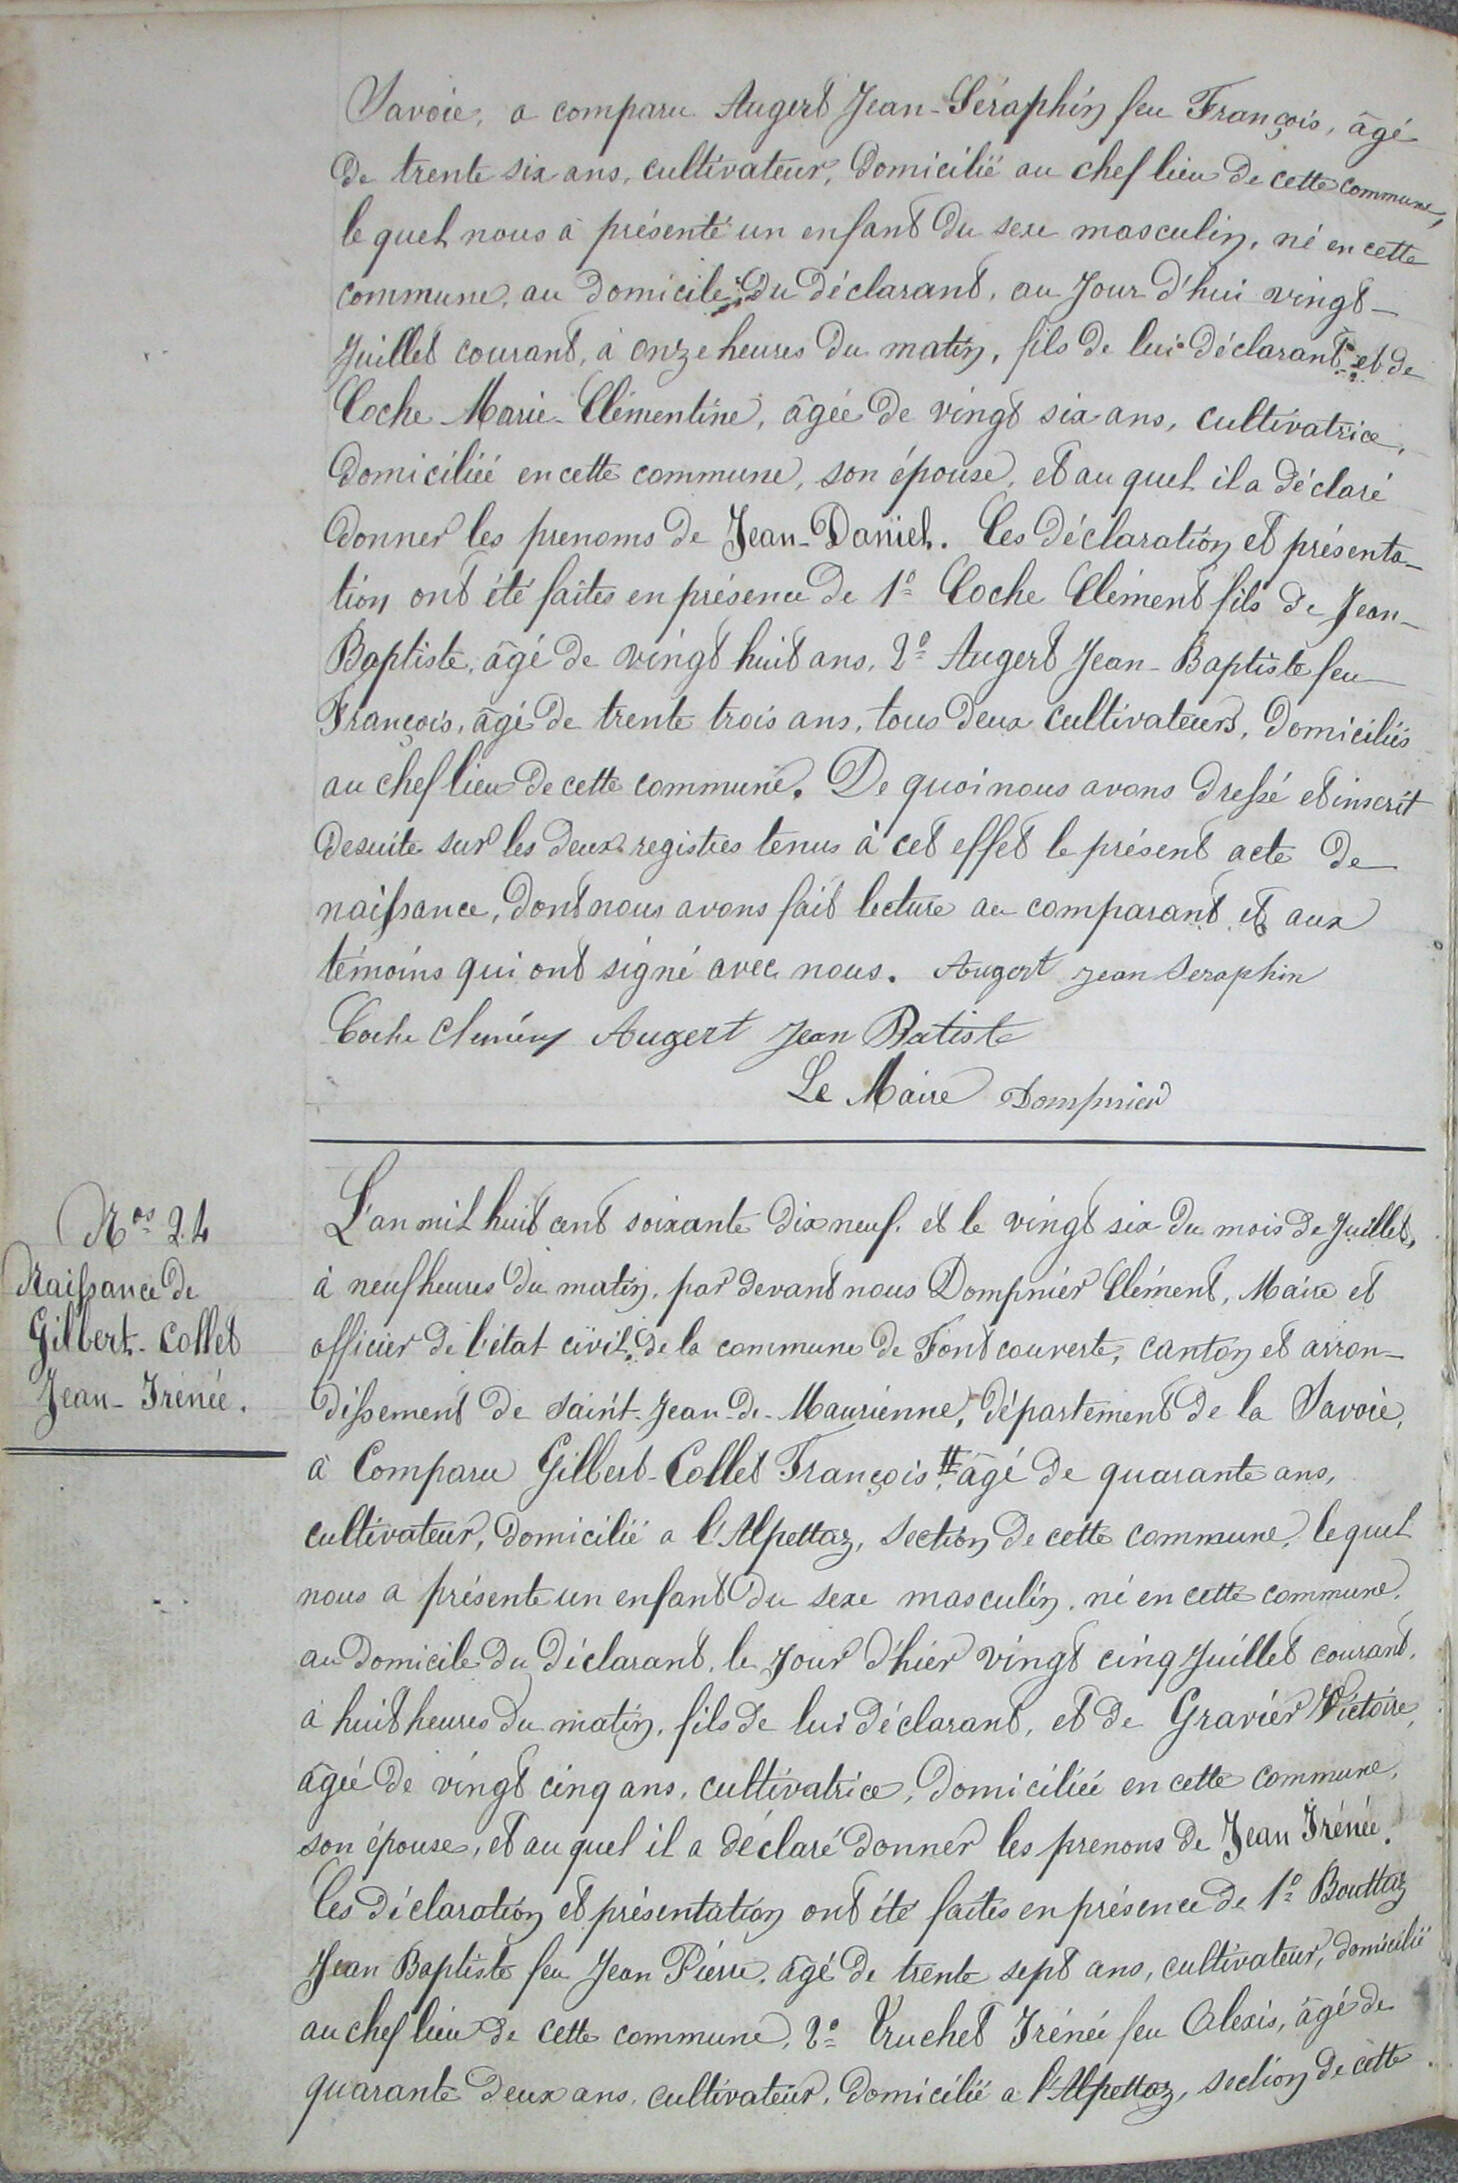 Savoie, a comparu Augert Jean-Séraphin feu François, âgé
de trente six ans, cultivateur, domicilié au chef lieu de cette commune,
le quel nous à présenté un enfant du sexe masculin, né en cette
commune, au domicile du déclarant, au Jour d'hui vingt-
Juillet courant, à onze heures du matin, fils de lui déclarant et de
Coche Marie-Clémentine, âgée de vingt six ans, cultivatrice,
domiciliée en cette commune, son épouse, et au quel il a déclaré
donner les prenoms de Jean-Daniel. Ces déclaration et présenta-
tion ont été faites en présence de 1º Coche Clément fils de Jean-
Baptiste, âgé de vingt huit ans, 2º Augert Jean-Baptiste feu
François, âgé de trente trois ans, tous deux cultivateurs, domiciliés
au chef lieu de cette commune. De quoi nous avons dressé et inscrit
desuite sur les deux registres tenus à cet effet le présent acte de
naissance, dont nous avons fait lecture au comparant et aux
témoins qui ont signé avec nous. Augert Jean Seraphin
Coche Augert Jean Batiste
Le Maire Dompnier
Nos 24
Naissance de
Gilbert-Collet
Jean-Irénée.
L'an mil huit cent soixante dix neuf, et le vingt six du mois de Juillet,
à neuf heures du matin, par devant nous Dompnier Clément, Maire et
officier de l'état civil, de la commune de Font couverte, canton et arron-
dissement de Saint-Jean-de-Maurienne, département de la Savoie,
à Comparu Gilbert-Collet François # âgé de quarante ans,
cultivateur, domicilié a l'Alpettaz, section de cette commune, le quel
nous a présenté un enfant du sexe masculin, né en cette commune,
au domicile du déclarant, le Jour d'hier vingt cinq Juillet courant,
à huit heures du matin, fils de lui déclarant, et de Gravier Victoire,
âgée de vingt cinq ans, cultivatrice, domiciliée en cette commune,
son épouse, et au quel il a déclaré donner les prenons de Jean Irénée.
Ces déclaration et présentation ont été faites en présence de 1º Bouttaz
Jean Baptiste feu Jean Pierre, âgé de trente sept ans, cultivateur, domicilié
au chef lieu de cette commune, 2º Truchet Irénée feu Alexis, âgé de
quarante deux ans, cultivateur, domicilié a l'Alpettaz, section de cette